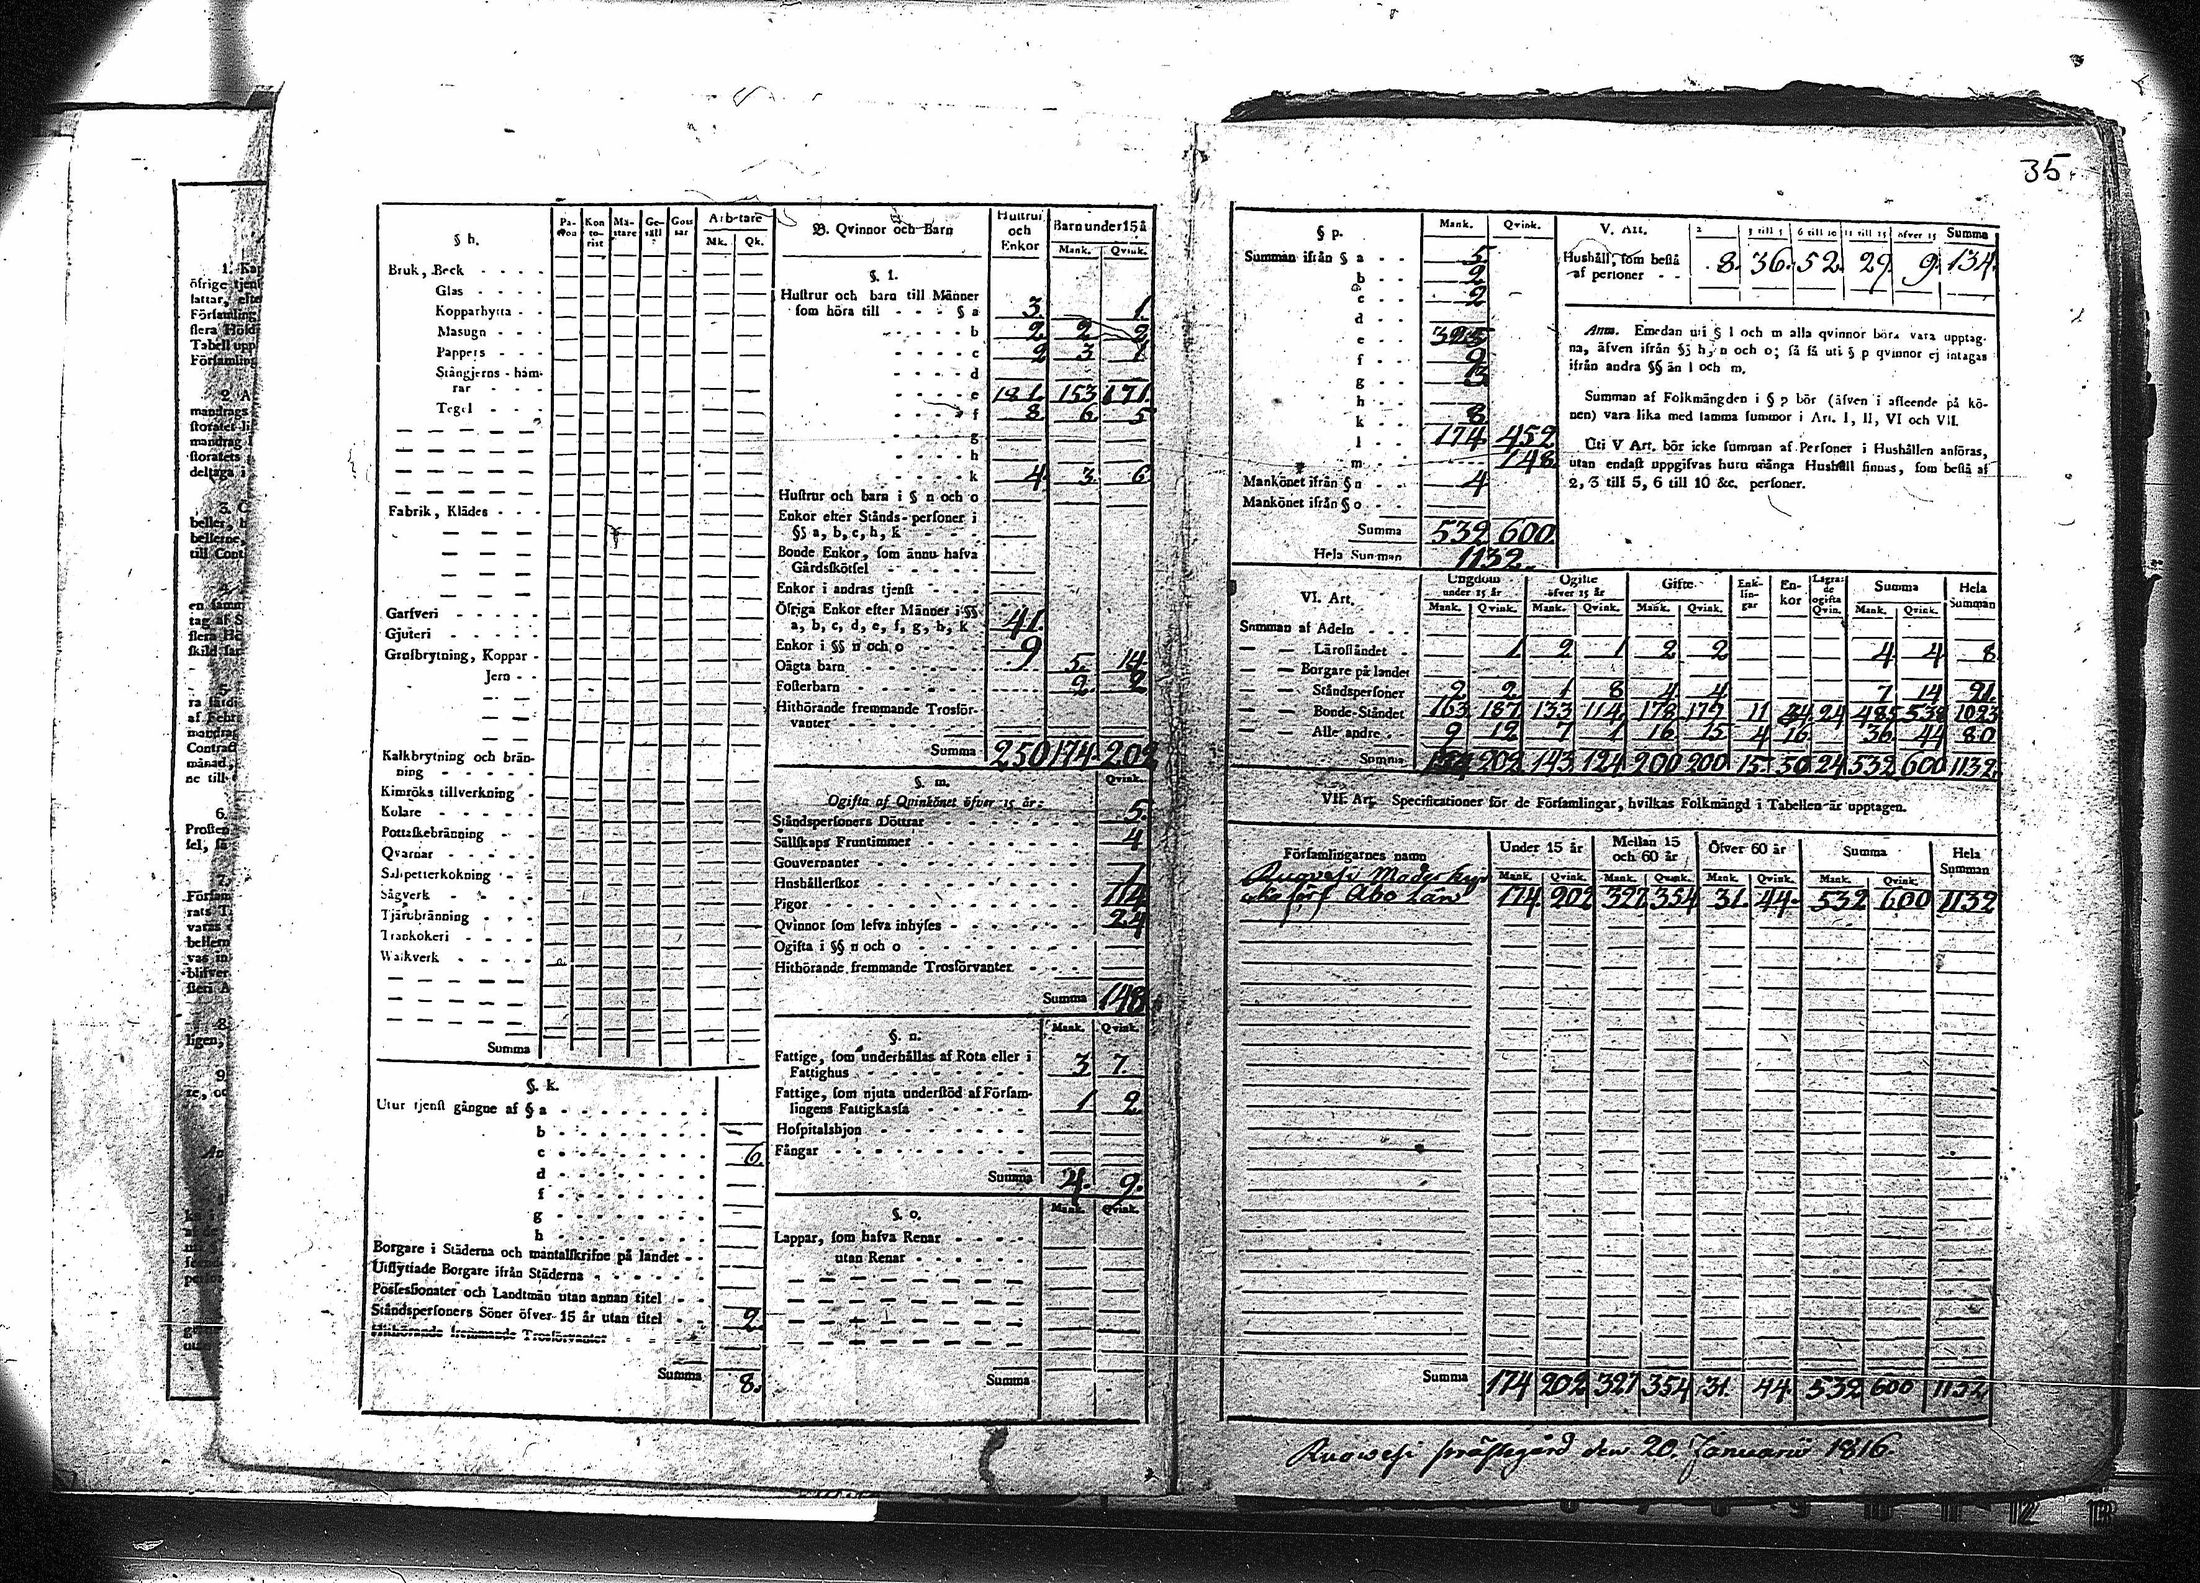 35.
§ h.
Pa-
tron
Kon
to-
rist
Mä-
stare
Ge-
säll
Gos
sar
Arbetare
Mk. Qk.
Bruk, Beck
Glas
Kopparhytta
Masugn
Pappers
Stångjerns-ham-
rar
Tegel
Fabrik, Klädes
Garfveri
Gjuteri
Grufbrytning, Koppar
Jern
Kalkbrytning och brän-
ning
Kimröks tillverkning
Kolare
Pottaskebränning
Qvarnar
Salpetterkokning
Sågverk
Tjärubränning
Trankokeri
Walkverk
Summa
§. k.
Utur tjenst gångne af § a
b
c 6.
d
f
g
h
Borgare i Städerna och mantalskrifne på landet
Utflyttade Borgare ifrån Städerna
Possessionater och Landtmän utan annan titel
Ståndspersoners Söner öfver 15 år utan titel 2
Hithörande fremmande Trosförvanter
Summa 8.
B. Qvinnor och Barn
Hustrur
och
Enkor
Barn under 15 å
Mank. Qvink.
§. l.
Hustrur och barn till Männer
som höra till § a 3. 1.
b 2 2 2
c 2 3 1
d
e 181. 153 171.
f 8. 6. 5
g
h
k 4. 3. 6
Hustrur och barn i § n och o
Enkor efter Stånds-personer i
§§ a, b, c, h, k
Bonde Enkor, som ännu hafva
Gårdsskötsel
Enkor i andras tjenst
Öfriga Enkor efter Männer i §§
a, b, c, d, e, f, g, h, k 41.
Enkor i §§ n och o 9
Oägta barn 5. 14
Fosterbarn 2. 2
Hithörande fremmande Trosför-
vanter
Summa 250 174. 202
§. m. Qvink.
Ogifta af Qvinkönet öfver 15 år:
Ståndspersoners Döttrar 5.
Sällskaps Fruntimmer 4
Gouvernanter
Hushållerskor 1
Pigor 114
Qvinnor som lefva inhyses 24
Ogifta i §§ n och o
Hithörande fremmande Trosförvanter
Summa 148
§. n. Mank. Qvink.
Fattige, som underhållas af Rota eller i
Fattighus 3 7.
Fattige, som njuta understöd af Försam-
lingens Fattigkassa 1 2
Hospitalshjon
Fångar
Summa 4. 9.
§. o. Mank. Qvink.
Lappar, som hafva Renar
utan Renar
Summa
§ p. Mank. Qvink.
Summan ifrån § a 5
b 2
c 2
d
e 325
f
g
h
k 8
l 174 452
m 148.
Mankönet ifrån § n 4
Mankönet ifrån § o
Summa 532 600
Hela Summan 1132.
V. Art. 2 3 till 5 6 till 10 11 till 15 öfver 15 Summa
Hushåll, som bestå
af personer 8. 36. 52. 29. 9. 134.
Anm. Emedan uti § l och m alla qvinnor böra vara upptag-
na, äfven ifrån §§ h, n och o; så få uti § p qvinnor ej intagas
ifrån andra §§ än l och m.
Summan af Folkmängden i § p bör (äfven i afseende på kö-
nen) vara lika med samma summor i Art. I, II, VI och VII.
Uti V Art. bör icke summan af Personer i Hushållen anföras,
utan endast uppgifvas huru många Hushåll finnas, som bestå af
2, 3 till 5, 6 till 10 &c. personer.
VI. Art.
Ungdom
under 15 år
Ogifte
öfver 15 år
Gifte
Enk-
lin-
gar
En-
kor
Lägra-
de
ogifta
Qvin.
Summa
Hela
Summan
Mank. Qvink. Mank. Qvink. Mank. Qvink. Mank. Qvink.
Summan af Adeln
Läroståndet 1 2 1 2 2 4 4 8
Borgare på landet
Ståndspersoner 2 2 1 8 4 4 7 14 21.
Bonde-Ståndet 163 187 133 114 178 179 11 34 24 485 538 1023
Alle andre 9 12 7 1 16 15 4 16 36 44 80
Summa 174 202 143 124 200 200 15 50 24 532 600 1132.
VII Art. Specificationer för de Församlingar, hvilkas Folkmängd i Tabellen är upptagen.
Församlingarnes namn
Under 15 år
Mellan 15
och 60 år
Öfver 60 år
Summa
Hela
Summan
Mank. Qvink. Mank. Qvink. Mank. Qvink. Mank. Qvink.
Ruovesi Moderkyr
ka förs Åbo Län 174 202 327 354 31. 44. 532 600 1132
Summa 174 202 327 354 31. 44. 532 600 1132
Ruowesi prästegård den 20. Januarii 1816.